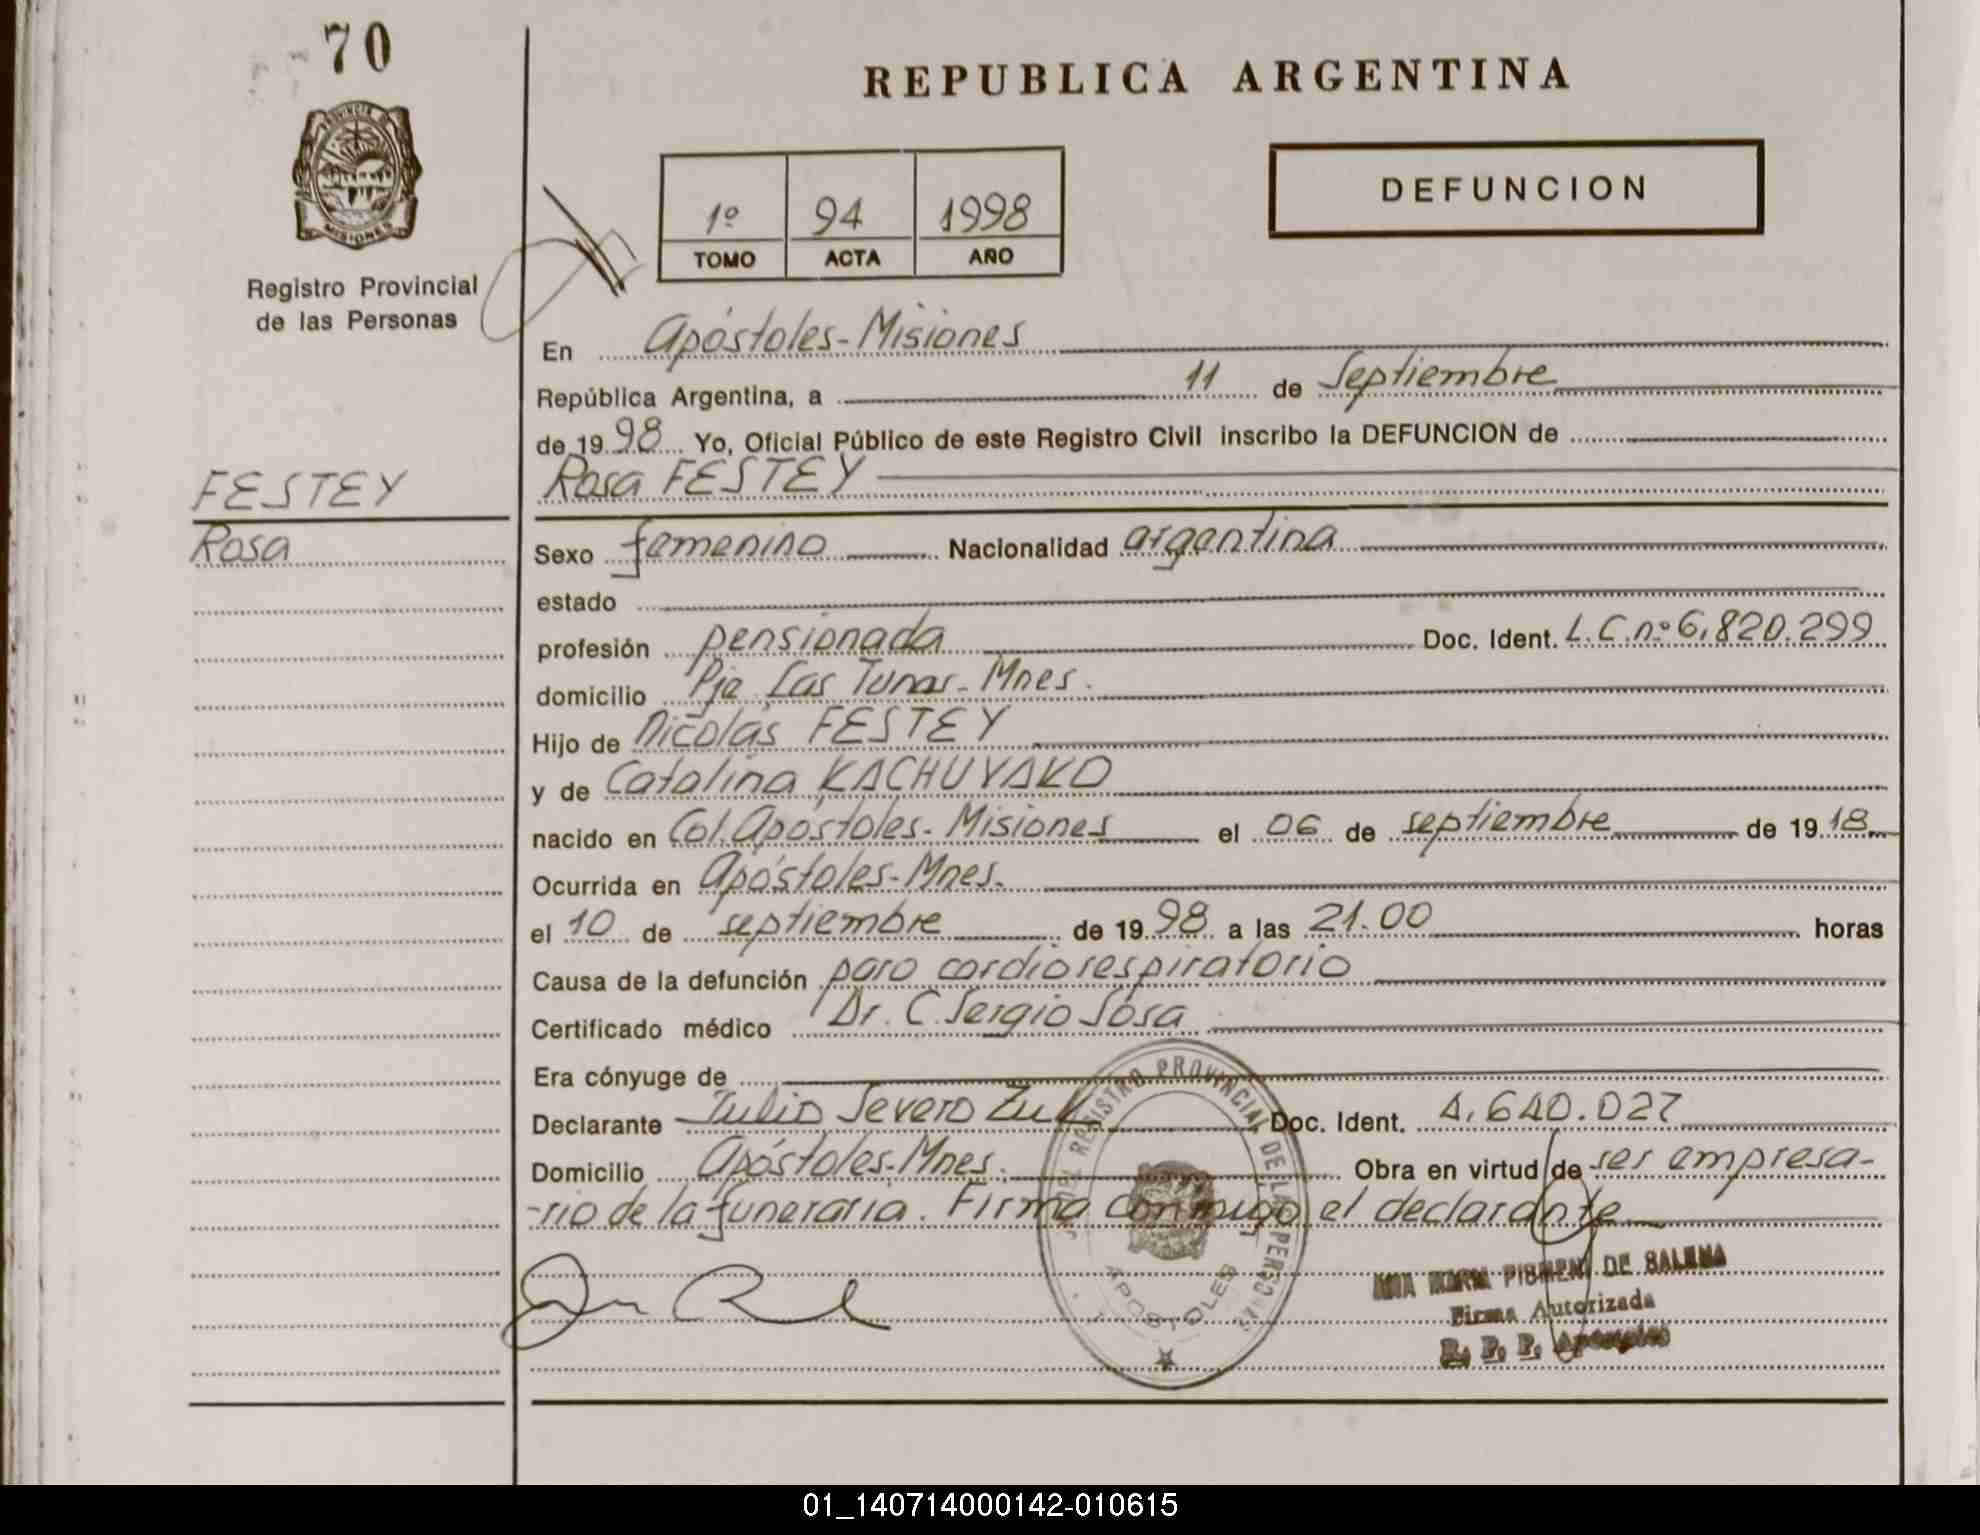 70
REPUBLICA ARGENTINA
PROVINCIA DE
MISIONES
Registro Provincial
de las Personas
1º 94 1998
TOMO ACTA AÑO
DEFUNCION
En Apóstoles-Misiones
República Argentina, a 11 de Septiembre
de 1998 Yo, Oficial Público de este Registro Civil inscribo la DEFUNCION de
FESTEY
Rosa
Rosa FESTEY
Sexo femenino Nacionalidad argentina
estado
profesión pensionada Doc. Ident. L.C.nº 6.820.299
domicilio Pje Las Tunas-Mnes.
Hijo de Nicolás FESTEY
y de Catalina KACHUVAKO
nacido en Col. Apóstoles-Misiones el 06 de septiembre de 1918
Ocurrida en Apóstoles-Mnes.
el 10 de septiembre de 1998 a las 21.00 horas
Causa de la defunción paro cardiorespiratorio
Certificado médico Dr. C. Sergio Sosa
Era cónyuge de
Declarante Julio Severo Zuk Doc. Ident. 4.640.027
Domicilio Apóstoles-Mnes. Obra en virtud de ser empresa-
-rio de la funeraria. Firma conmigo el declarante
REGISTRO PROVINCIAL DE LAS PERSONAS
APOSTOLES
DE
Firma Autorizada
R. P. P. Apóstoles
01_140714000142-010615